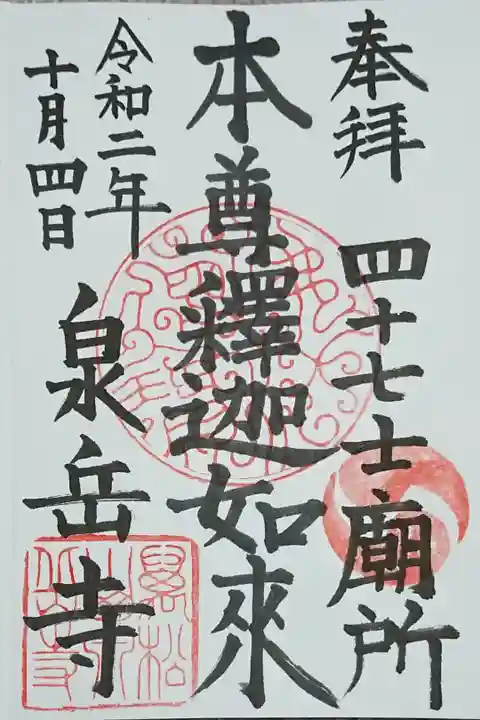 奉拜
四十七士廟所
本尊釋迦如來
令和二年
十月四日
泉岳寺